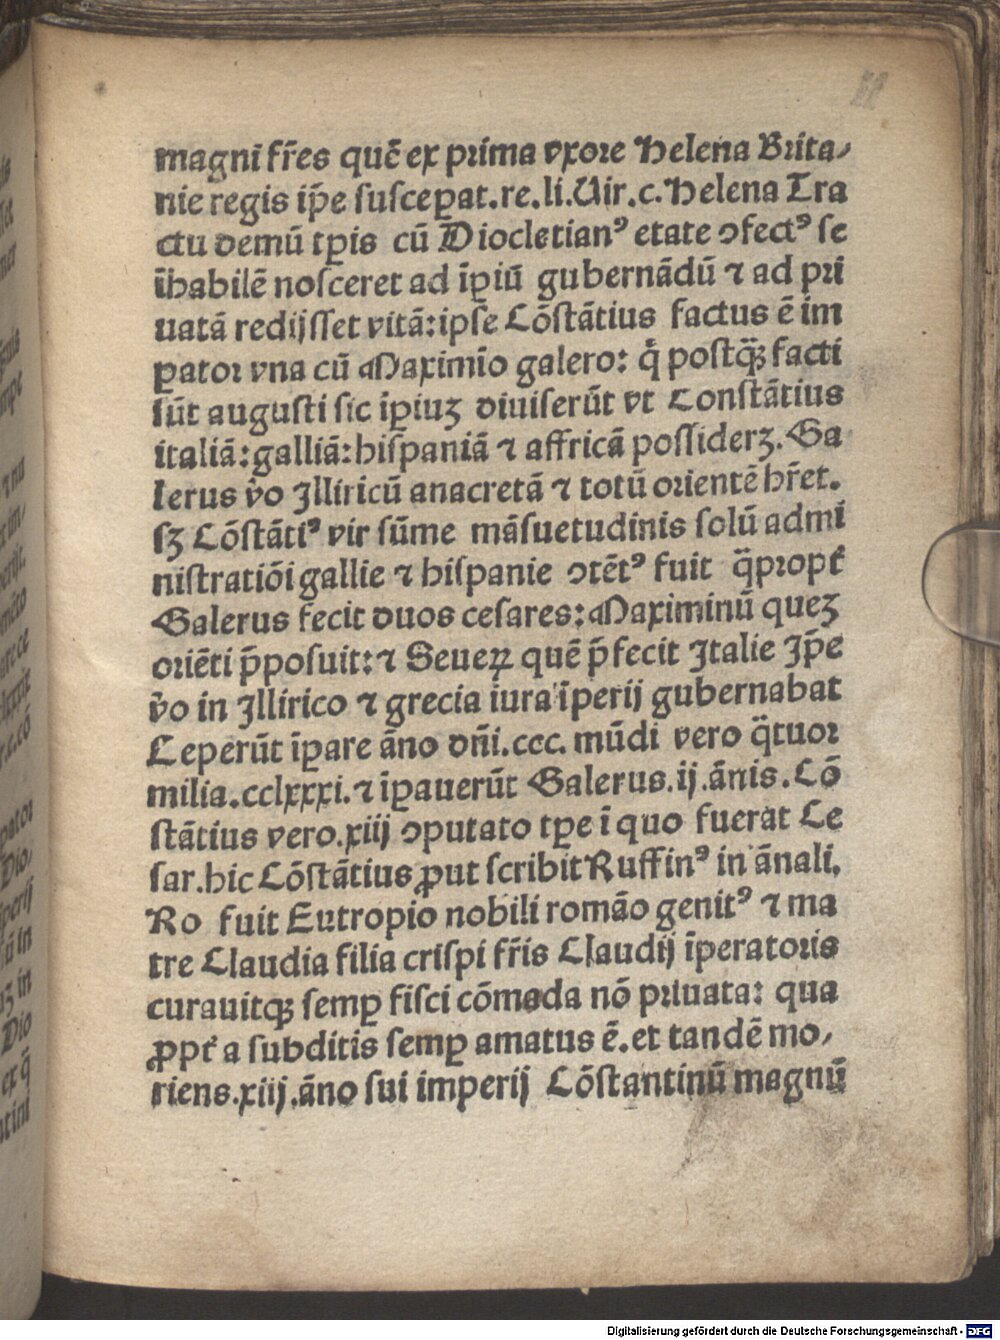 magni fr̄es quē ex prima vxore Helena Brita⸗
nie regis ip̄e ſuſceꝑat.re.li.Uir.c.Helena Tra
ctu demū tꝑis cū Diocletianꝰ etate ↄfectꝰ ſe
īhabilē noſceret ad īꝑiū gubernādū ⁊ ad pri
uatā redijſſet vitā:ipſe Cōſtātius factus ē im
ꝑator vna cū Maximīo galero: q̄ poſtꝙ̄ facti
ſūt auguſti ſic īꝑiuꝫ diuiſerūt vt Conſtātius
italiā:galliā:hiſpaniā ⁊ affricā poſſiderꝫ.Ga
lerus v̄o Jlliricū anacretā ⁊ totū orientē hr̄et.
ſꝫ Cōſtātiꝰ vir ſūme māſuetudinis ſolū admi
niſtratiōi gallie ⁊ hiſpanie ↄtētꝰ fuit q̄propt̄
Galerus fecit duos ceſares:Maximinū queꝫ
oriēti p̄poſuit:⁊ Seueꝝ quē p̄fecit Jtalie Jp̄e
v̄o in Jllirico ⁊ grecia iura īperij gubernabat
Ceperūt īꝑare āno dn̄i.ccc. mūdi vero q̄tuor
milia.cclxxxi.⁊ īꝑauerūt Galerus.ij.ānis.Cō
ſtātius vero.xiij ↄputato tꝑe ī quo fuerat Ce
ſar.hic Cōſtātius ꝓut ſcribit Ruffinꝰ in ānali.
Ro fuit Eutropio nobili romāo genitꝰ ⁊ ma
tre Claudia filia criſpi fr̄is Claudij īperatoris
curauitqꝫ ſemꝑ fiſci cōmoda nō priuata: qua
ꝓpt̄ a ſubditis ſemꝑ amatus ē.et tandē mo⸗
riens.xiij.āno ſui imperij Cōſtantinū magnū
Digitalisierung gefördert durch die Deutsche Forschungsgemeinschaft - DFG